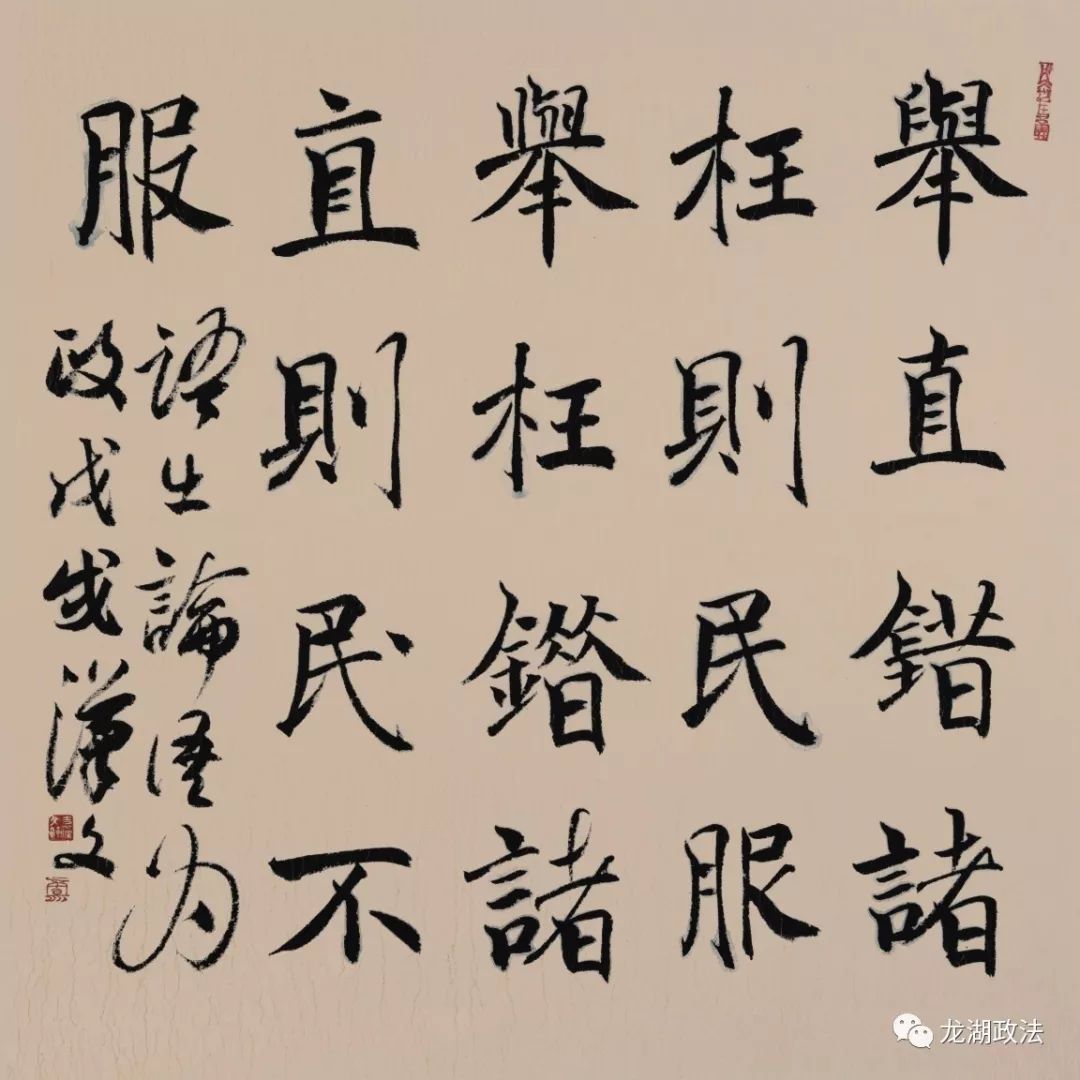 舉直錯諸
枉則民服
舉枉錯諸
直則民不
服
語出論語为
政戊戌漢文
龙湖政法